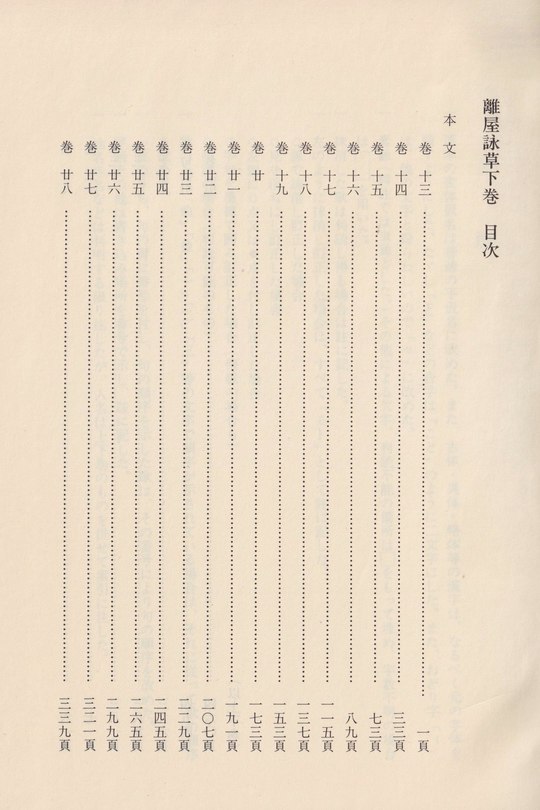 離屋詠草下巻 目次
本文
巻 十三……一頁
巻 十四……三三頁
巻 十五……七三頁
巻 十六……八九頁
巻 十七……一一五頁
巻 十八……一三七頁
巻 十九……一五三頁
巻 廿……一七三頁
巻 廿一……一九一頁
巻 廿二……二〇七頁
巻 廿三……二二九頁
巻 廿四……二四五頁
巻 廿五……二六五頁
巻 廿六……二九九頁
巻 廿七……三二一頁
巻 廿八……三三九頁